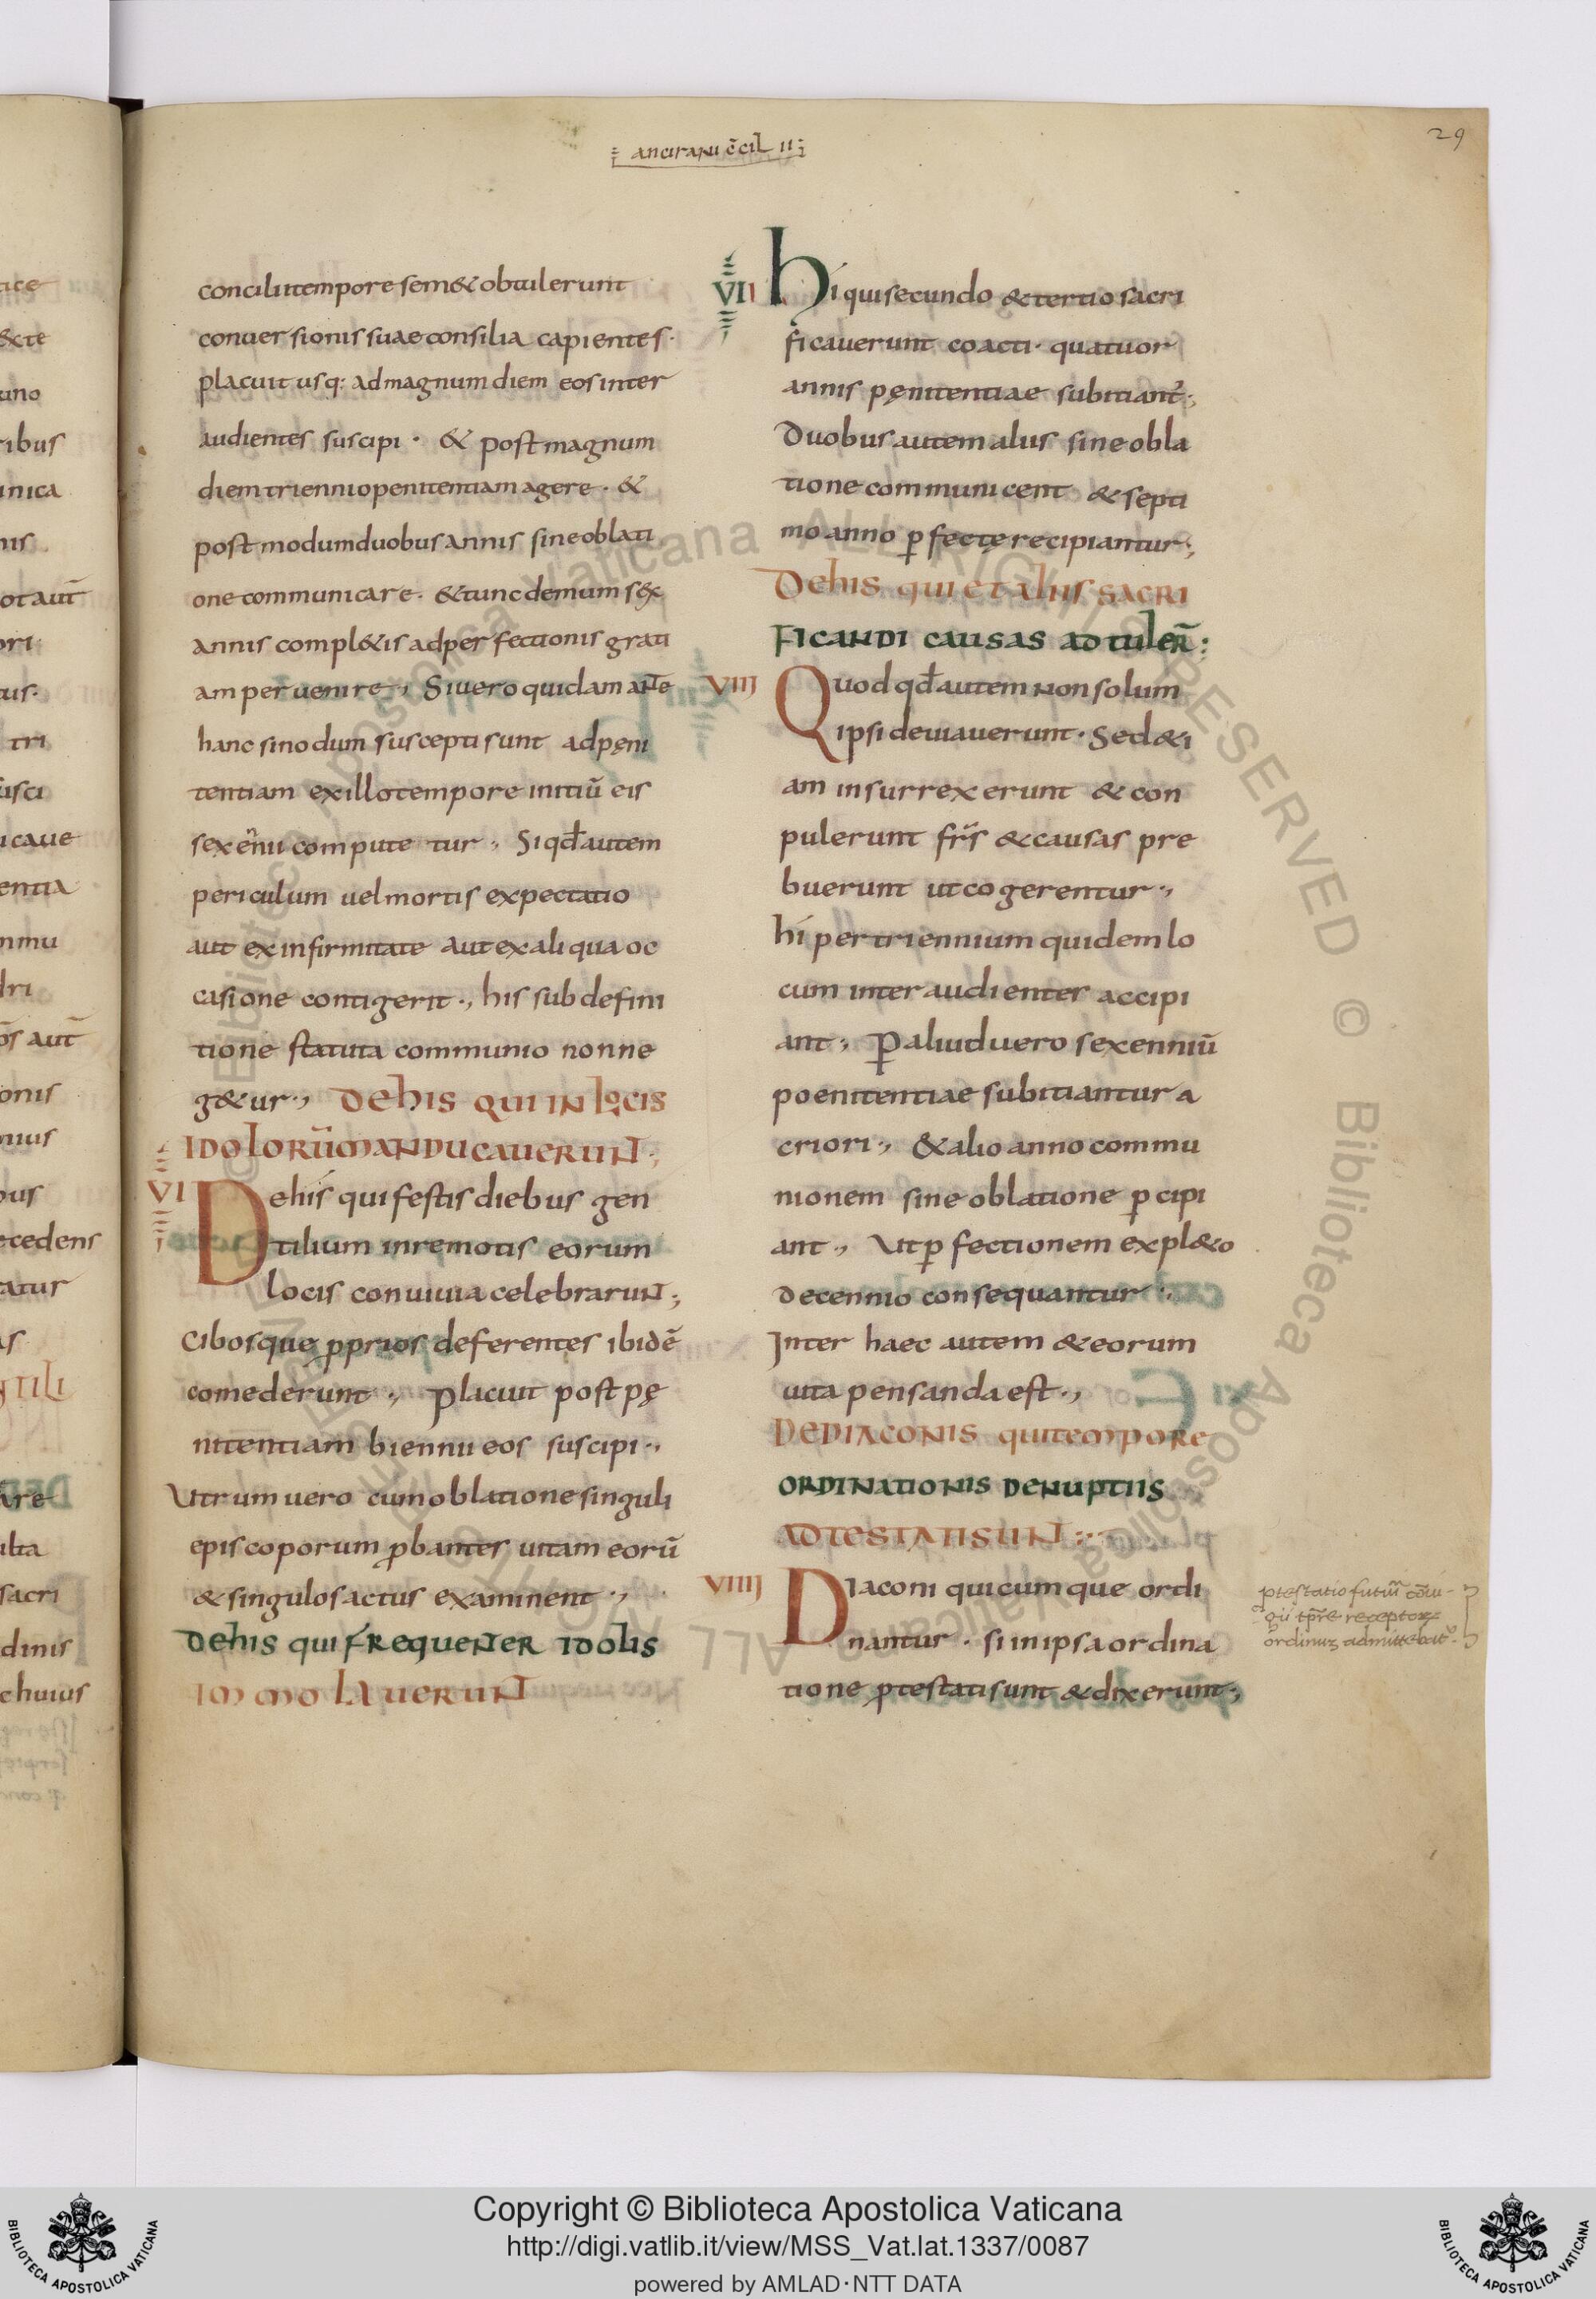 ancirani c̄cil II
29
concilii tempore sem& obtulerunt
conuersionis suae consilia capientes·
placuit usq: ad magnum diem eos inter
audientes suscipi · & post magnum
diem triennio penitentiam agere · &
postmodum duobus annis sine oblati
one communicare · & tunc demum sex
annis compl&is ad perfectionis grati
am peruenire ., Si uero quidam ante
hanc sinodum suscepti sunt ad pęni
tentiam ex illo tempore initiū eis
sexēnii compute tur ., Si qd̄ autem
periculum uel mortis expectatio
aut ex infirmitate aut ex aliqua oc
casione contigerit ., his sub defini
tione statuta communio non ne
g&ur ., De his qui in locis
idolorū manducauerunt ;
VI De his qui festis diebus gen
tilium in remotis eorum
locis conuiuia celebrarunt ;
Cibosque ꝓprios deferentes ibidē
comederunt ., Placuit post pę
nitentiam biennii eos suscipi .,
Utrum uero cum oblatione singuli
episcoporum ꝓbantes uitam eorū
& singulos actus examinent .,
De his qui frequenter idolis
immolauerunt
VII hi qui secundo & tertio sacri
ficauerunt coacti · quatuor
annis pęnitentiae subitiant̄ ;
Duobus autem aliis sine obla
tione communicent & septi
mo anno ꝑfectę recipiantur ;
De his qui et aliis sacri
ficandi causas adtuler̄ :
VIII Quod qd̄ autem non solum
ipsi deuiauerunt · Sed & i
am insurrexerunt & con
pulerunt fr̄s & causas pre
buerunt ut cogerentur .,
hi per triennium quidem lo
cum inter audienter accipi
ant ., ꝑ aliud uero sexenniū
poenitentiae subitiantur a
criori ., & alio anno commu
nionem sine oblatione ꝑcipi
ant ., Ut ꝑfectionem expl&o
decennio consequantur .,
Inter haec autem & eorum
uita pensanda est .,
De diaconis qui tempore
ordinationis de nuptiis
adtestati sunt :
VIIII Diaconi quicumque ordi
nantur · si in ipsa ordina
tione ꝓtestati sunt & dixerunt ;
Copyright © Biblioteca Apostolica Vaticana
http://digi.vatlib.it/view/MSS_Vat.lat.1337/0087
powered by AMLAD·NTT DATA
BIBLIOTECA APOSTOLICA VATICANA
BIBLIOTECA APOSTOLICA VATICANA